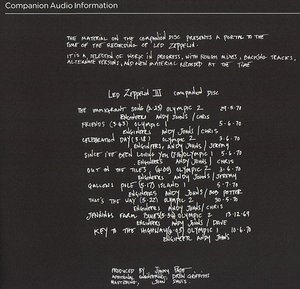 Companion Audio Information
THE MATERIAL ON THE COMPANION DISC PRESENTS A PORTAL TO THE
TIME OF THE RECORDING OF LED ZEPPELIN.
IT IS A SELECTION OF WORK IN PROGRESS, WITH ROUGH MIXES, BACKING TRACKS,
ALTERNATE VERSIONS, AND NEW MATERIAL RECORDED AT THE TIME
LED ZEPPELIN III COMPANION DISC
THE IMMIGRANT SONG (2.25) OLYMPIC 2
ENGINEERS ANDY JOHNS / CHRIS
FRIENDS OLYMPIC 1 5.6.70
ENGINEERS ANDY JOHNS / CHRIS
CELEBRATION DAY OLYMPIC 2 3.6.70
ENGINEERS, ANDY JOHNS / JEREMY
SINCE I'VE BEEN LOVING YOU OLYMPIC 1 5.6.70
ENGINEERS ANDY JOHNS / CHRIS
OUT ON THE TILES OLYMPIC 2 3.6.70
ENGINEERS ANDY JOHNS / JEREMY
GALLOWS POLE (5.17) ISLAND 1 5.7.70
ENGINEERS ANDY JOHNS / BOB POTTER
THAT'S THE WAY (5.22) OLYMPIC 2 30.5.70
ENGINEERS ANDY JOHNS / CHRIS
JENNINGS FARM BLUES OLYMPIC 2 13.12.69
ENGINEERS ANDY JOHNS / DAVE
KEY TO THE HIGHWAY OLYMPIC 1 10.6.70
ENGINEER ANDY JOHNS
PRODUCED BY JIMMY PAGE
ADDITIONAL ENGINEERING, DREW GRIFFITHS
MASTERING, JOHN DAVIS